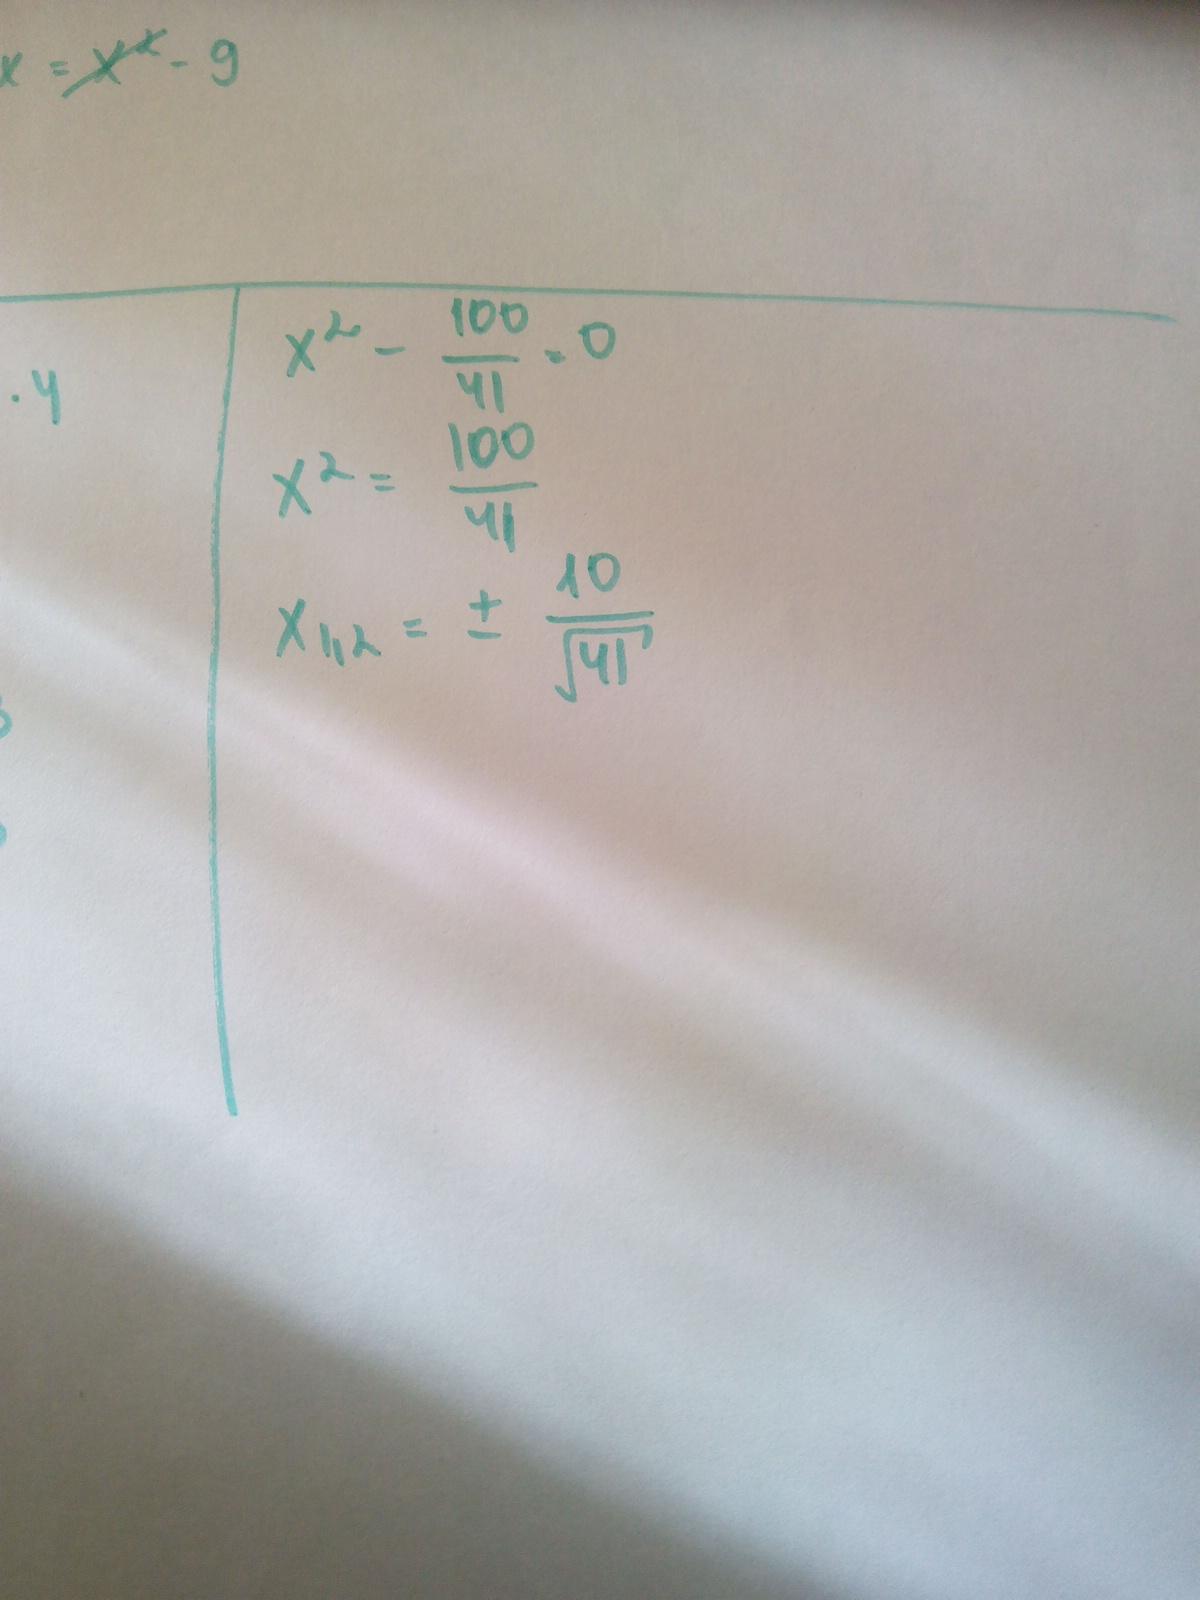 x = x² - 9
· 4
x² - 100/41 = 0
x² = 100/41
x₁,₂ = ± 10/√41